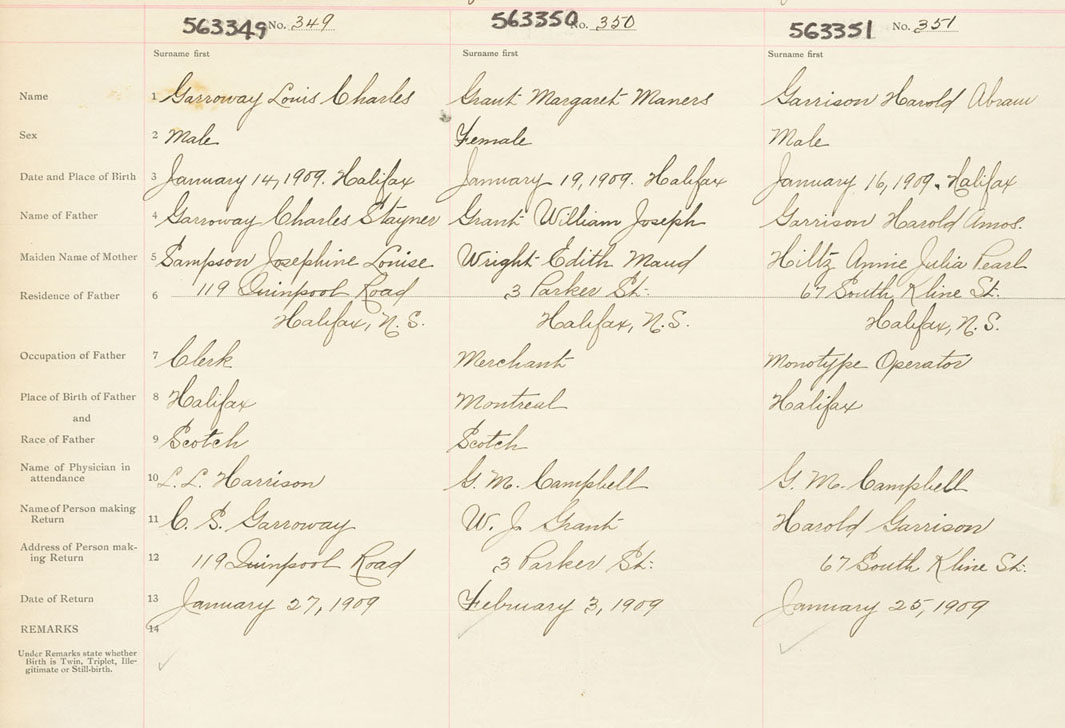 563349 No. 349 563350 No. 350 563351 No. 351
Surname first Surname first Surname first
Name 1 Garroway Louis Charles Grant Margaret Maners Garrison Harold Abram
Sex 2 Male Female Male
Date and Place of Birth 3 January 14, 1909. Halifax January 19, 1909. Halifax January 16, 1909. Halifax
Name of Father 4 Garroway Charles Stayner Grant William Joseph Garrison Harold Amos.
Maiden Name of Mother 5 Sampson Josephine Louise Wright Edith Maud Hiltz Annie Julia Pearl
Residence of Father 6 119 Quinpool Road 3 Parker St. 67 South Kline St.
Halifax, N.S. Halifax, N.S. Halifax, N.S.
Occupation of Father 7 Clerk Merchant Monotype Operator
Place of Birth of Father 8 Halifax Montreal Halifax
and
Race of Father 9 Scotch Scotch
Name of Physician in
attendance 10 L. L. Harrison G. M. Campbell G. M. Campbell
Name of Person making
Return 11 C. S. Garroway W. J. Grant Harold Garrison
Address of Person mak-
ing Return 12 119 Quinpool Road 3 Parker St. 67 South Kline St.
Date of Return 13 January 27, 1909 February 3, 1909 January 25, 1909
REMARKS 14
Under Remarks state whether
Birth is Twin, Triplet, Ille-
gitimate or Still-birth.